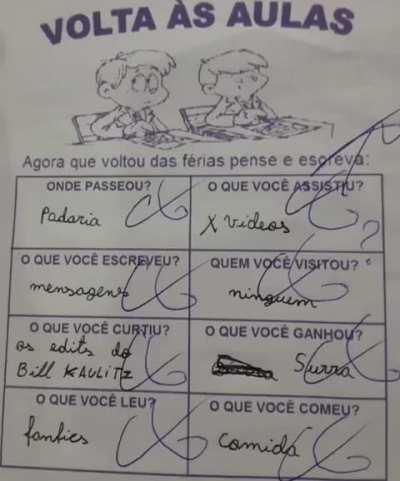 VOLTA ÀS AULAS
Agora que voltou das férias pense e escreva:
ONDE PASSEOU?
Padaria
O QUE VOCÊ ASSISTIU?
X Videos
?
O QUE VOCÊ ESCREVEU?
mensagens
QUEM VOCÊ VISITOU?
ninguem
O QUE VOCÊ CURTIU?
os edits do
Bill KAULITZ
O QUE VOCÊ GANHOU?
Surra
O QUE VOCÊ LEU?
fanfics
O QUE VOCÊ COMEU?
Comida